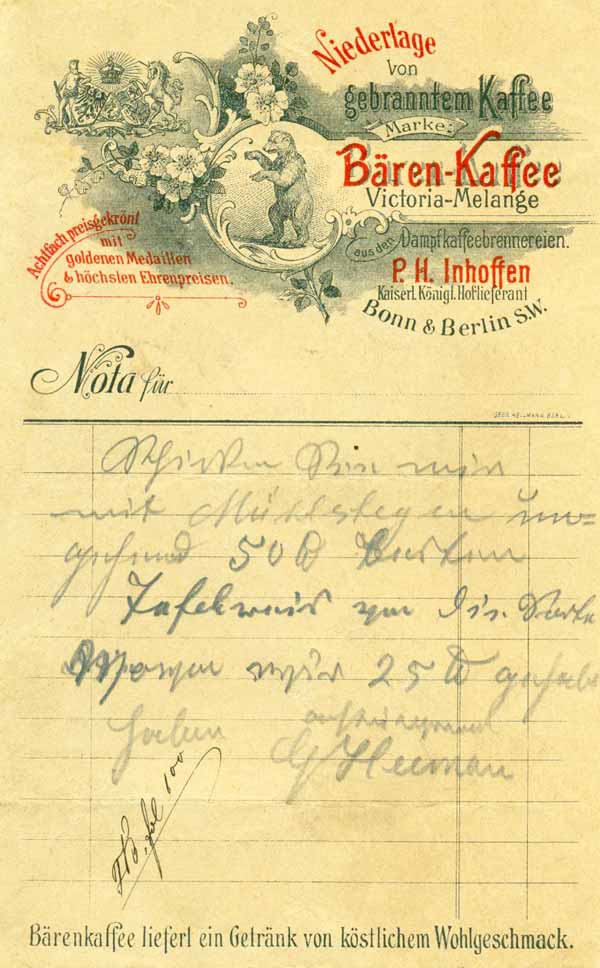 Niederlage
von
gebranntem Kaffee
Marke:
Bären-Kaffee
Victoria-Melange
aus den Dampfkaffeebrennereien.
P. H. Inhoffen
Kaiserl. Königl. Hoflieferant
Bonn & Berlin S.W.
Achtfach preisgekrönt
mit
goldenen Medaillen
& höchsten Ehrenpreisen.
Nota für
Schicken Sie mir
mit Mühlstegen um=
gehend 50 ℔ besten
Tafelreis von die Sorte
wovon wir 25 ℔ gehabt
haben
G Heeman
Bärenkaffee liefert ein Getränk von köstlichem Wohlgeschmack.